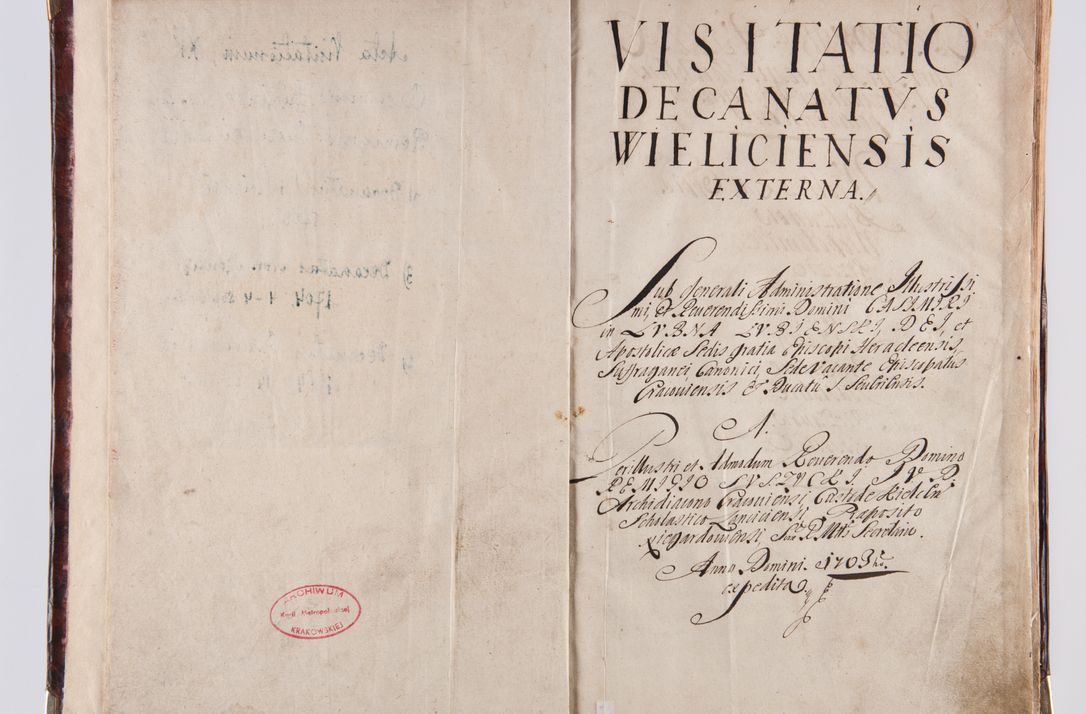 ARCHIWUM
Kurii Metropolitalnej
KRAKOWSKIEJ
VISITATIO
DECANATÛS
WIELICIENSIS
EXTERNA.
Sub Generali Administratione Illustrissi
mi, et Reverendissimi Domini CASIMIRI
in ŁVBNA ŁVBIENSKI, DEI, et
Apostolicæ Sedis gratia Episcopi Heracleensis,
Suffraganei, Canonici, Sede Vacante Episcopatus
Cracoviensis et Ducatûs Severiensis.
A.
Perillustri et Admodum Reverendo Domino
REMIGIO SVSZYCKI, I V D.
Archidiacono Cracoviensi, Custode Kielcen
Scholastico Lanciciensi, Præposito
Secretario.
Anno Domini. 1703
expedita